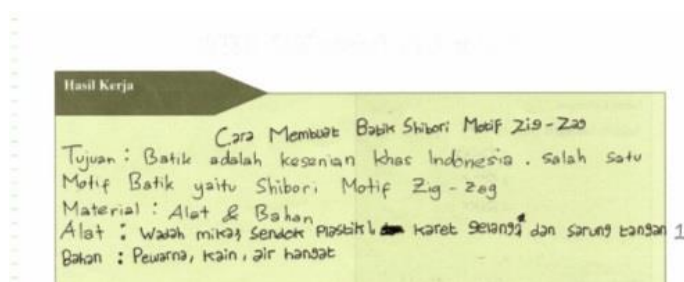 Hasil Kerja
Cara Membuat Batik Shibori Motif Zig-Zag
Tujuan : Batik adalah kesenian khas Indonesia. salah satu
Motif Batik yaitu Shibori Motif Zig-zag
Material : Alat & Bahan
Alat : Wadah mika, Sendok Plastik, karet gelang, dan sarung tangan 1
Bahan : Pewarna, kain, air hangat